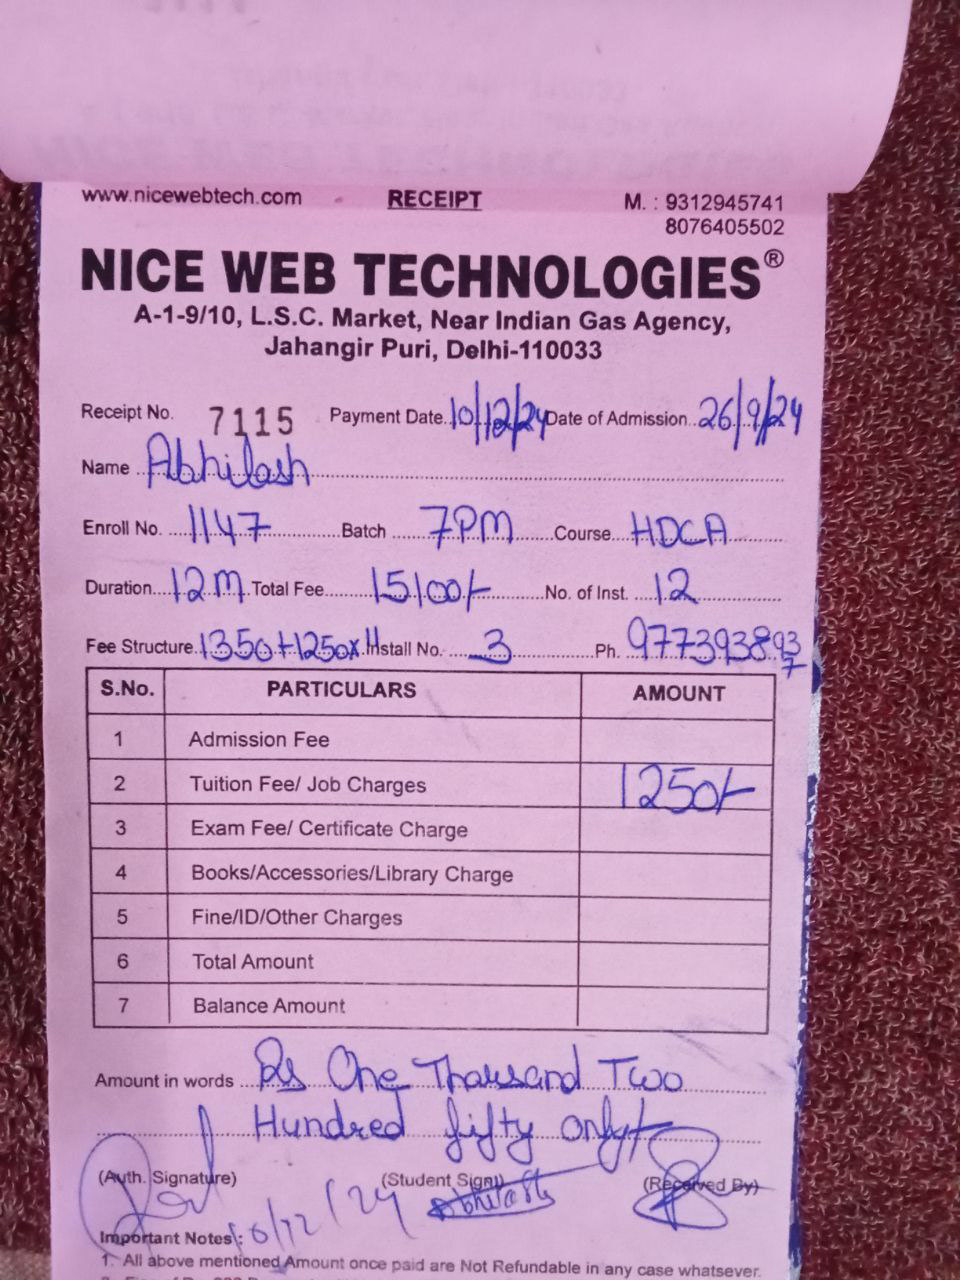 www.nicewebtech.com RECEIPT M. : 9312945741
8076405502
NICE WEB TECHNOLOGIES®
A-1-9/10, L.S.C. Market, Near Indian Gas Agency,
Jahangir Puri, Delhi-110033
Receipt No. 7115 Payment Date. 10/12/24 Date of Admission. 26/9/24
Name Abhilash
Enroll No. 1147 Batch 7PM Course HDCA
Duration 12M Total Fee 15100/- No. of Inst. 12
Fee Structure. 1350+1250x11 Install No. 3 Ph. 9773938937
S.No. PARTICULARS AMOUNT
1 Admission Fee
2 Tuition Fee/ Job Charges 1250/-
3 Exam Fee/ Certificate Charge
4 Books/Accessories/Library Charge
5 Fine/ID/Other Charges
6 Total Amount
7 Balance Amount
Amount in words Rs One Thousand Two
Hundred fifty only
(Auth. Signature) (Student Sign) (Received By)
10/12/24 Abhilash
Important Notes :
1. All above mentioned Amount once paid are Not Refundable in any case whatsever.